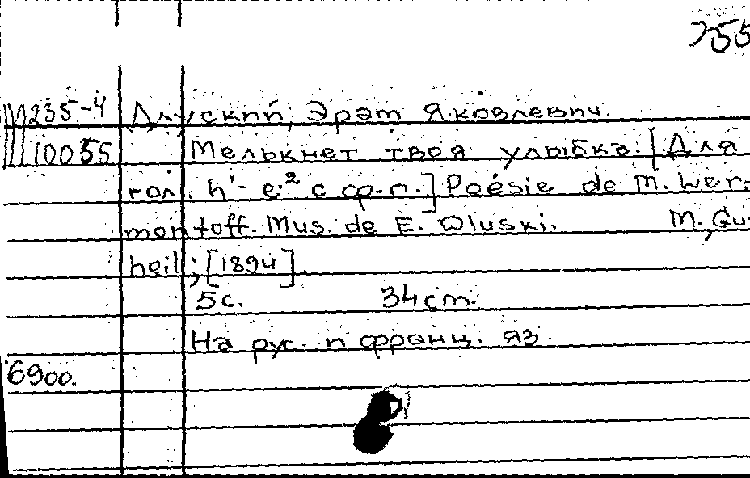 755
Ш235-4 Длуский, Эраст Яковлевич.
10055 Мелькнет твоя улыбка. [Для
гол. h¹- e² с ср.п.] Poésie de M. Ler-
montoff. Mus. de E. Dluski. M., Gut-
heil; [1894]
5с. 34cm.
На рус. и франц. яз
6900.